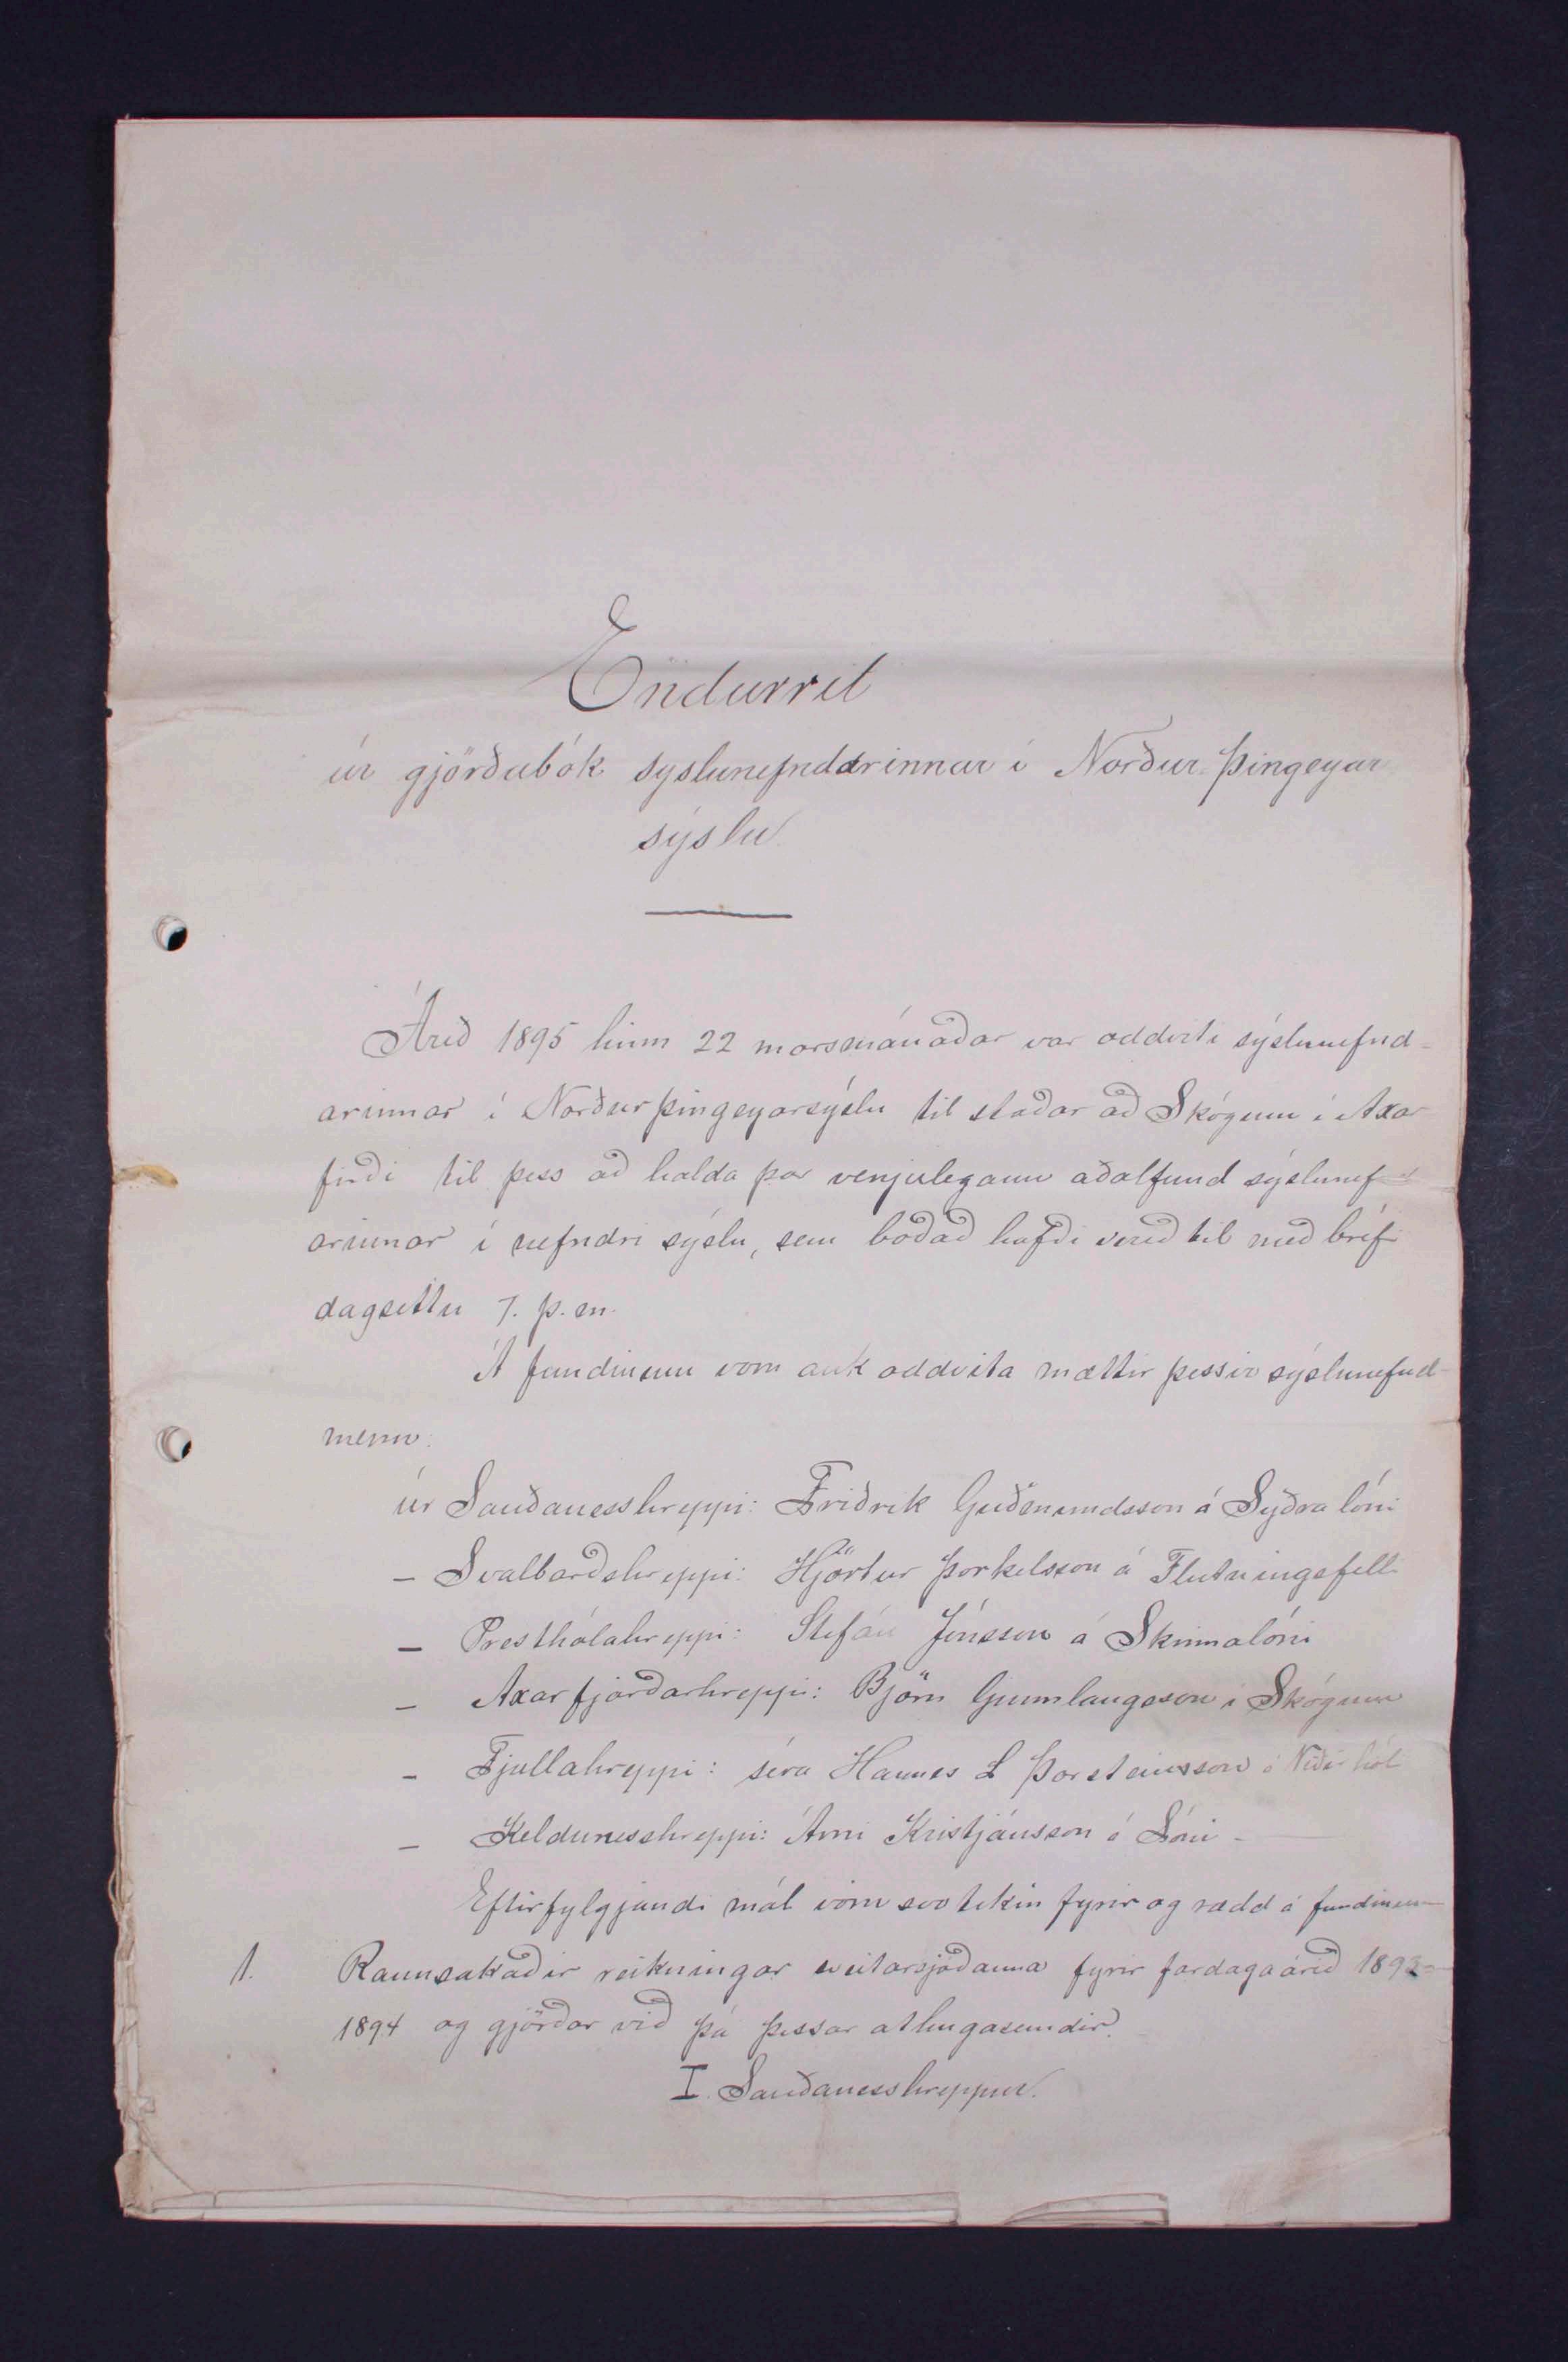 Endurrit
úr gjörðabók syslunefndarinnar í Norður-Þingeyar
sýslu.
Árið 1895 hinn 22 marsmánaðar var oddviti sýslunefnd-
arinnar í Norðurþingeyarsýslu til staðar að Skógum í Axar
firði til þess að halda þar venjulegann aðalfund sýslunef
arinnar í nefndri sýslu, sem boðað hafði verið til með bréfi
dagsettu 7. þ. m.
Á fundinum voru auk oddvita mættir þessir sýslunefnd-
menn:
úr Sauðanesshreppi: Friðrik Guðmundsson á Syðralóni
- Svalbarðshreppi: Hjörtur Þorkelsson á Flutningsfelli
- Presthólahreppi: Stefán Jónsson á Skinnalóni
- Axarfjarðarhreppi: Björn Gunnlaugsson í Skógum
- Fjallahreppi: séra Hannes L Þorsteinsson á Víðirhól
- Keldunesshreppi: Árni Kristjánsson á Lóni -
Eftirfylgjandi mál vóru svo tekin fyrir og rædd á fundinum
1. Rannsakaðir reikningar sveitarsjóðanna fyrir fardagaárið 1893-
1894 og gjörðar við þá þessar athugasemdir.
I. Sauðanesshreppur.